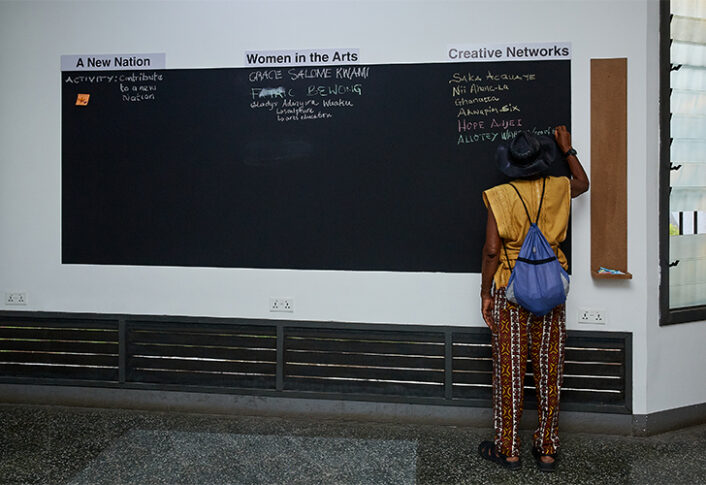 A New Nation
ACTIVITY: Contribute
to a new
Nation
Women in the Arts
GRACE SALOME KWAMI
BEWONG
Gladys
to arts education
Creative Networks
SAKA ACQUAYE
Nii
Ghanatta
Akwapim Six
HOPE
ALLOTEY